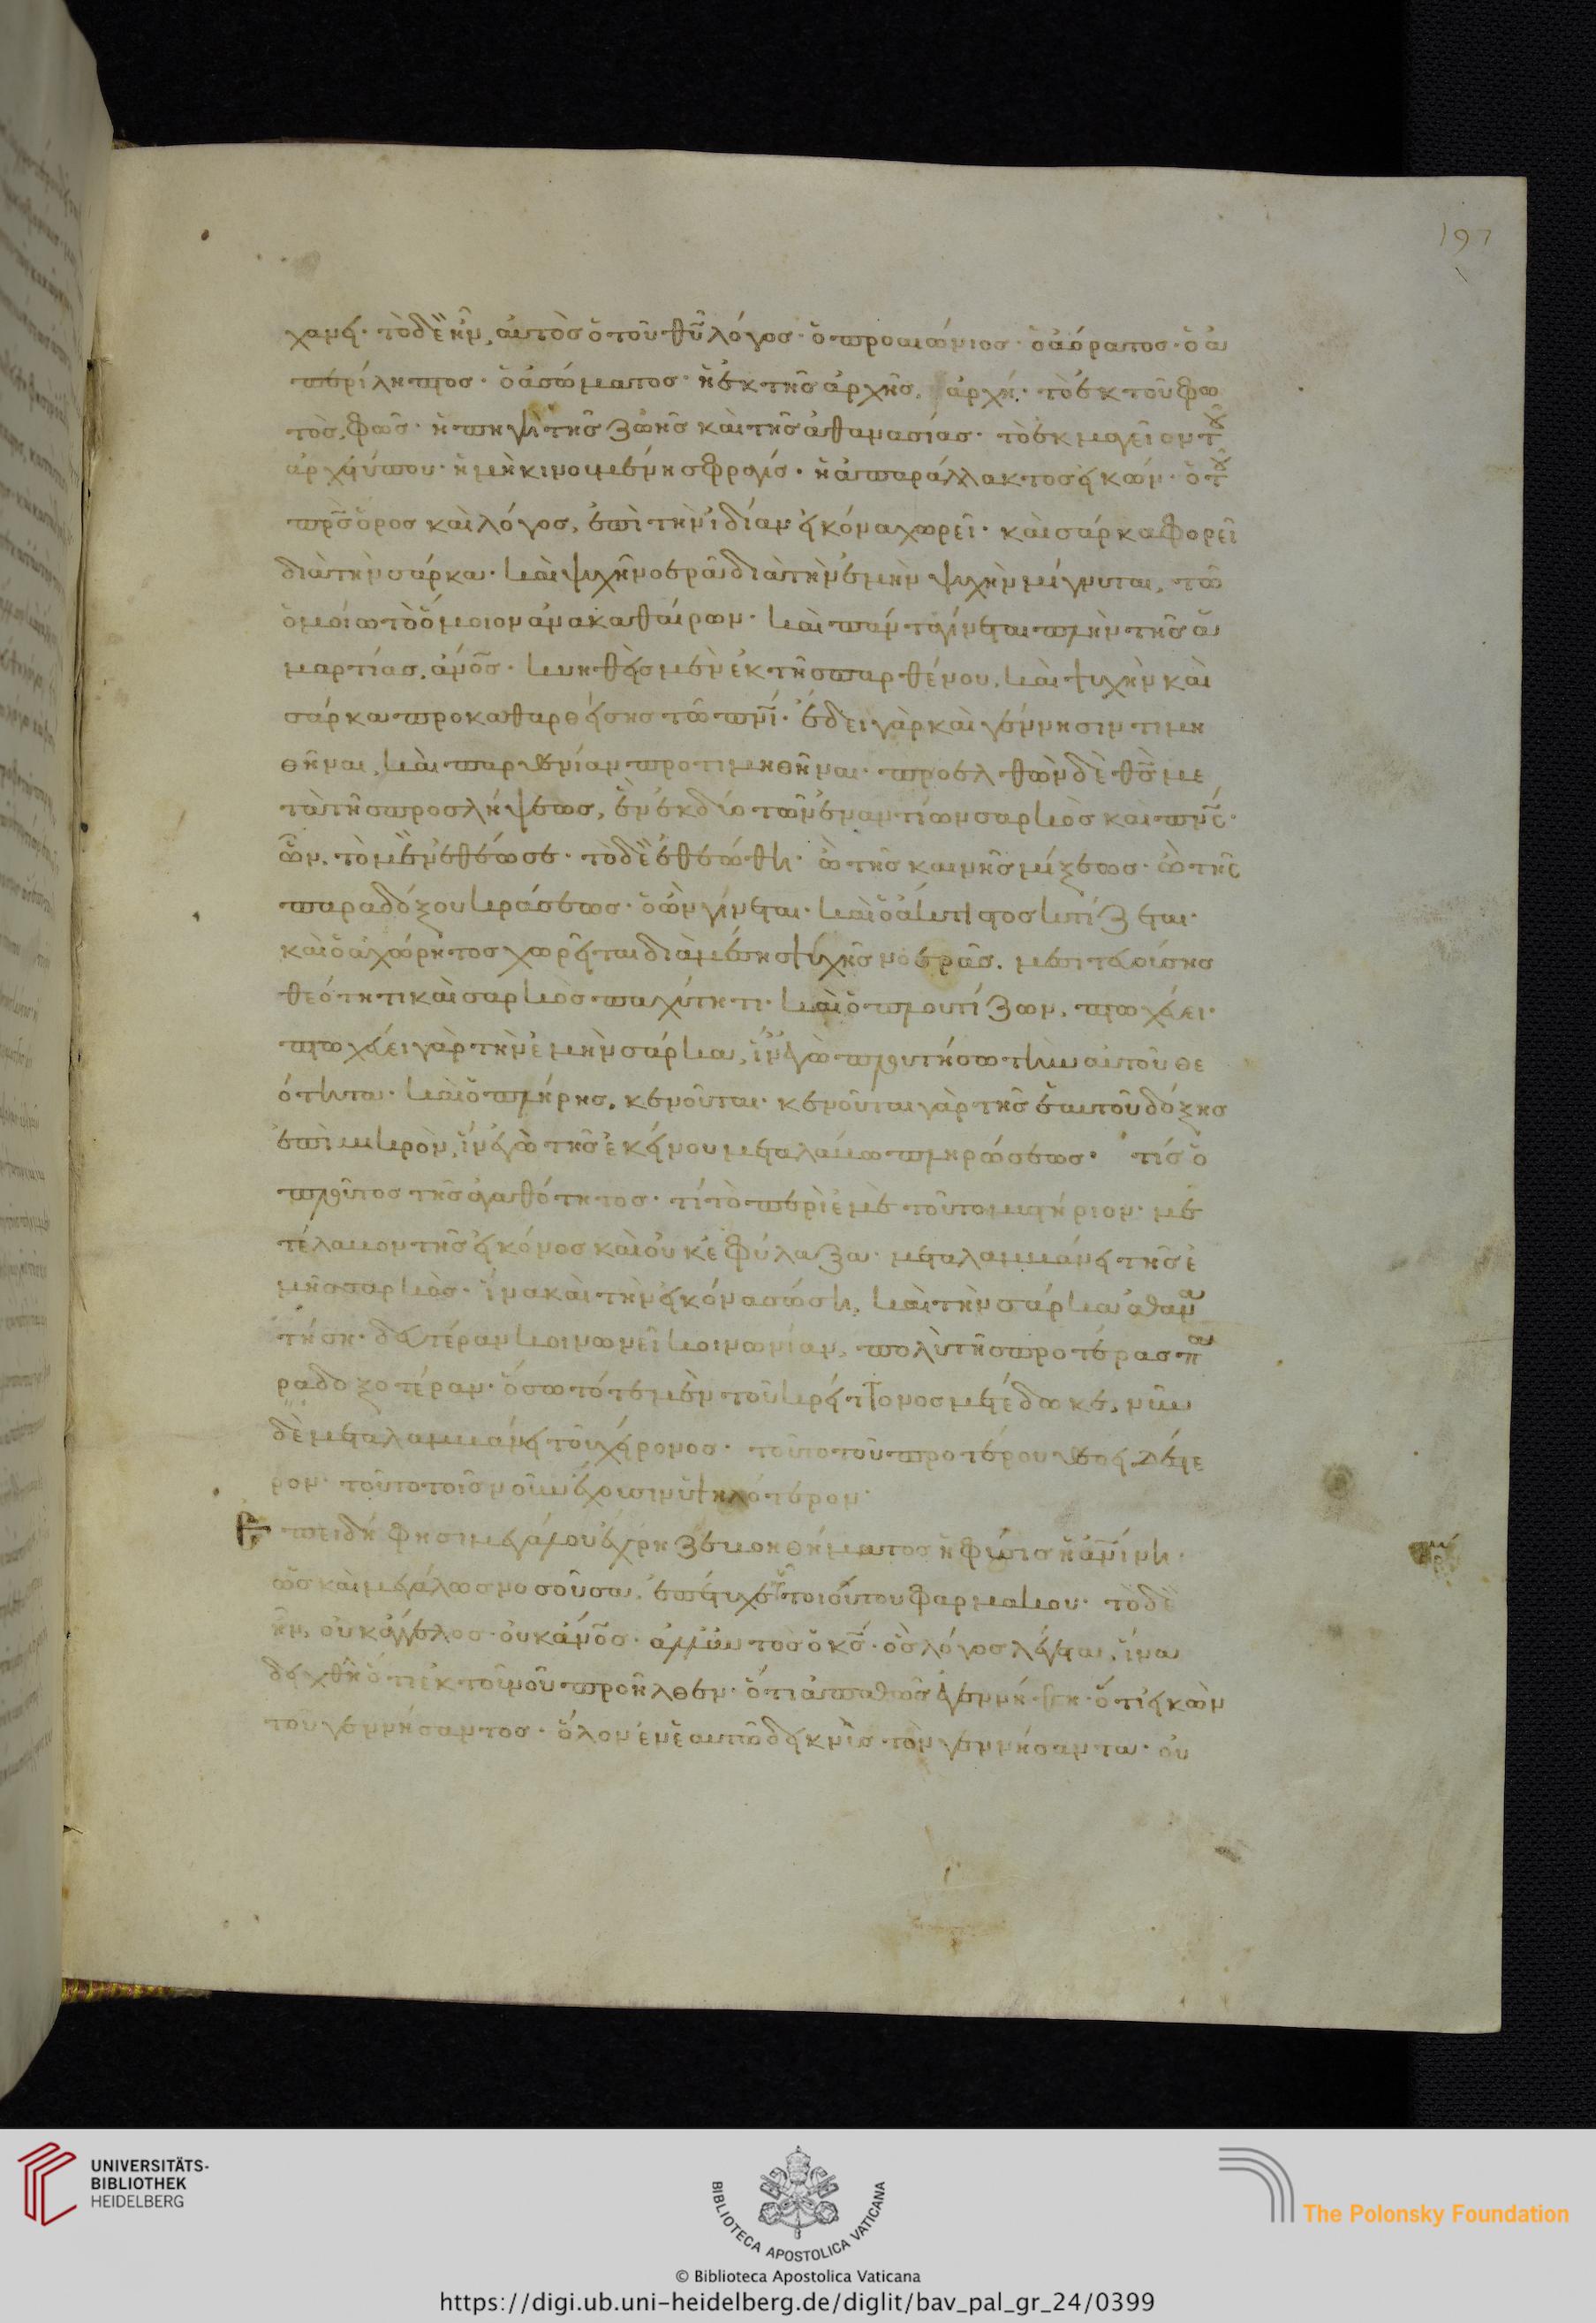 197
χανεί· τὸ δὲ ἦν, αὐτὸς ὁ τοῦ θῦ λόγος· ὁ προαιώνιος· ὁ ἀόρατος· ὁ ἀ
περίληπτος· ὁ ἀσώματος· ἡ ἐκ τῆς ἀρχῆς, ἀρχή· τὸ ἐκ τοῦ φω
τὸς, φῶς· ἡ πηγὴ τῆς ζωῆς καὶ τῆς ἀθανασίας· τὸ ἐκμαγεῖον τοῦ
ἀρχετύπου· ἡ μὴ κινουμένη σφραγίς· ἡ ἀπαράλλακτος εἰκών· ὁ τοῦ
πρς ὅρος καὶ λόγος, ἐπὶ τὴν ἰδίαν εἰκόνα χωρεῖ· καὶ σάρκα φορεῖ
διὰ τὴν σάρκα· καὶ ψυχῇ νοερᾷ διὰ τὴν ἐμὴν ψυχὴν μίγνυται, τῶ
ὁμοίω τὸ ὅμοιον ἀνακαθαίρων· καὶ πάντα γίνεται πλὴν τῆς ἁ
μαρτίας, ἄνος· κυηθεὶς μὲν ἐκ τῆς παρθένου, καὶ ψυχὴν καὶ
σάρκα προκαθαρθείσης τῶ πνι· ἔδει γὰρ καὶ γέννησιν τιμη
θῆναι, καὶ παρθενίαν προτιμηθῆναι· προελθὼν δὲ θς με
τὰ τῆς προσλήψεως, ἓν ἐκ δύο τῶν ἐναντίων σαρκὸς καὶ πνς·
ὧν, τὸ μὲν ἐθέωσε· τὸ δὲ ἐθεώθη· ὢ τῆς καινῆς μίξεως· ὢ τῆς
παραδόξου κράσεως· ὁ ὢν γίνεται· καὶ ὁ ἄκτιστος κτίζεται·
καὶ ὁ ἀχώρητος χωρεῖται διὰ μέσης ψυχῆς νοερᾶς, μεσιτευούσης
θεότητι καὶ σαρκὸς παχύτητι· καὶ ὁ πλουτίζων, πτωχεύει·
πτωχεύει γὰρ τὴν ἐμὴν σάρκα, ἵν' ἐγὼ πλουτήσω τὴν αὐτοῦ θε
ότητα· καὶ ὁ πλήρης, κενοῦται· κενοῦται γὰρ τῆς ἑαυτοῦ δόξης
ἐπὶ μικρὸν, ἵν' ἐγὼ τῆς ἐκείνου μεταλάβω πληρώσεως· τίς ὁ
πλοῦτος τῆς ἀγαθότητος· τί τὸ περὶ ἐμὲ τοῦτο μυστήριον· με
τέλαβον τῆς εἰκόνος καὶ οὐκ ἐφύλαξα· μεταλαμβάνει τῆς ἐ
μῆς σαρκὸς· ἵνα καὶ τὴν εἰκόνα σώση, καὶ τὴν σάρκα ἀθανα
τίση· δευτέραν κοινωνεῖ κοινωνίαν, πολὺ τῆς προτέρας πα
ραδοξοτέραν· ὅσω τότε μὲν τοῦ κρείττονος μετέδωκε, νῦν
δὲ μεταλαμβάνει τοῦ χείρονος· τοῦτο τοῦ προτέρου θεοειδέστε
ρον· τοῦτο τοῖς νοῦν ἔχουσιν ὑψηλότερον·
Ἐπειδή φησι μεγάλου ἔχρηζε βοηθήματος ἡ φύσις ἡ ἀνίνη·
ὡς καὶ μεγάλως νοσοῦσα, ἐπέτυχε τοιούτου φαρμάκου· τὸ δὲ
ἦν, οὐκ ἄγγελος· οὐκ ἄνος· ἀλλ' αὐτὸς ὁ κς· ὃς λόγος λέγεται, ἵνα
δειχθῆ ὅτι ἐκ τοῦ νοῦ προῆλθεν· ὅτι ἀπαθῶς ἐγεννήθη· ὅτι εἰκὼν
τοῦ γεννήσαντος· ὅλον ἐν ἑαυτῶ δεικνὺς τὸν γεννήσαντα· οὐ
UNIVERSITÄTS-
BIBLIOTHEK
HEIDELBERG
BIBLIOTECA APOSTOLICA VATICANA
The Polonsky Foundation
© Biblioteca Apostolica Vaticana
https://digi.ub.uni-heidelberg.de/diglit/bav_pal_gr_24/0399